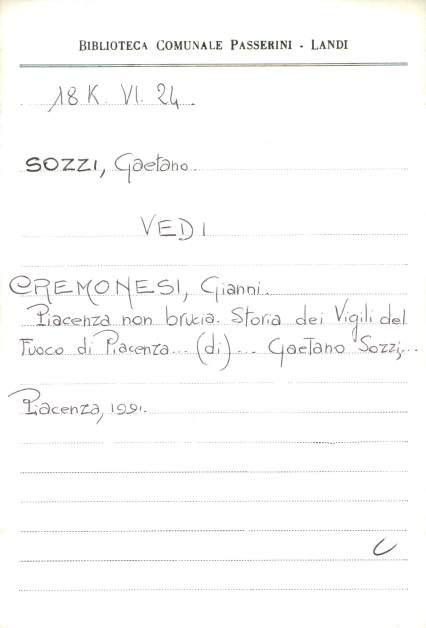 BIBLIOTECA COMUNALE PASSERINI - LANDI
18 K. VI. 24.
SOZZI, Gaetano.
VEDI
CREMONESI, Gianni.
Piacenza non brucia. Storia dei Vigili del
Fuoco di Piacenza... (di)... Gaetano Sozzi,...
Piacenza, 1991.